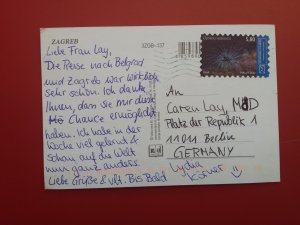 ZAGREB
3ZGB-137
Liebe Frau Lay,
Die Reise nach Belgrad
und Zagreb war wirklich
sehr schön. Ich danke
Ihnen, dass sie mir diese
Chance ermöglicht
haben. Ich habe in der
Woche viel gelernt &
schau auf die Welt
nun ganz anders.
Liebe Grüße & vlt. Bis Bald
Lydia
Körner
An
Caren Lay, MD
Platz der Republik 1
11011 Berlin
GERMANY